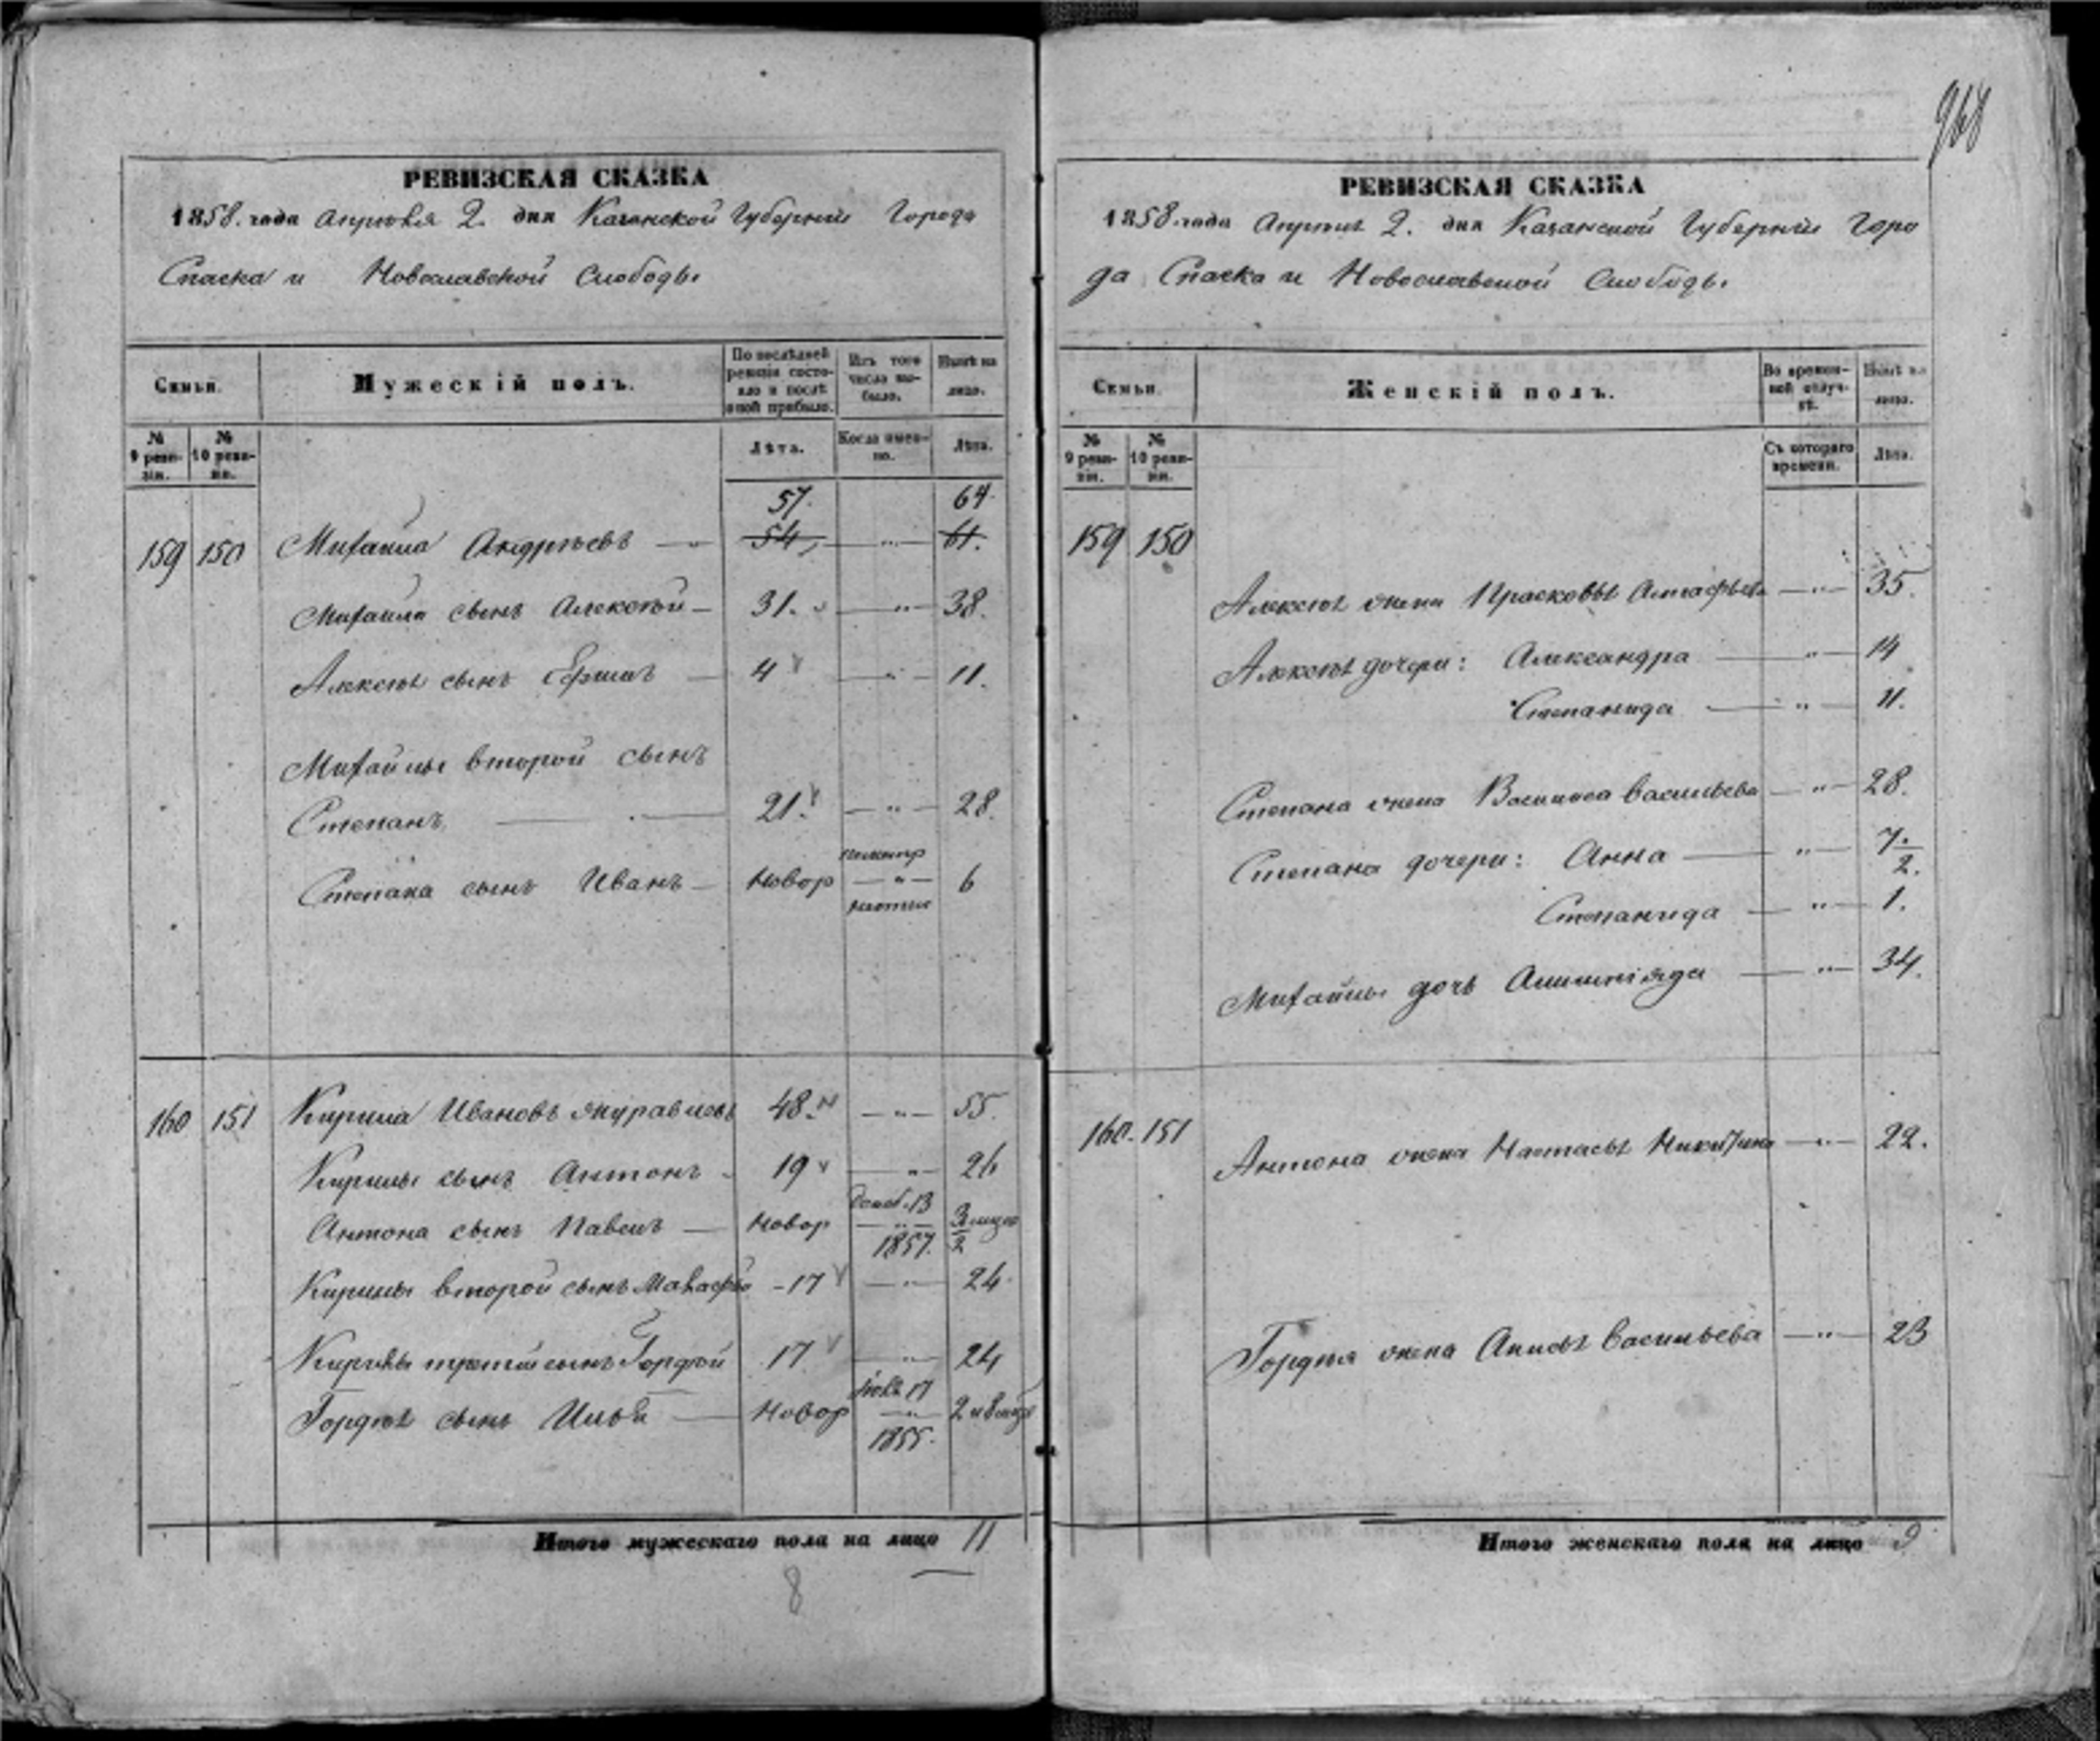 РЕВИЗСКАЯ СКАЗКА
1858. года Апрѣля 2. дня Казанской Губерніи Города
Спаска и Новославской Слободы
Семьи. Мужескій полъ. По послѣдней ревизіи состояло и послѣ оной прибыло. Изъ того числа выбыло. Нынѣ на лицо.
№ 9 ревизіи. № 10 ревизіи. Лѣта. Когда именно. Лѣта.
57. 64.
159 150 Михаила Андрѣевъ — 54 — „ — 61.
Михаила сынъ Алексѣй — 31. — „ — 38.
Алексѣя сынъ Ефимъ — 4 — „ — 11.
Михайлы второй сынъ
Степанъ — 21. — „ — 28.
Степана сынъ Иванъ — Новор — „ — 6
160 151 Кирила Ивановъ Журавлевъ 48. — „ — 55.
Кирилы сынъ Антонъ 19 — „ — 26
Антона сынъ Павелъ — Новор Декаб. 13 1857.
Кирилы второй сынъ — 17 — „ — 24.
Кирилы третій сынъ Гордѣй 17 — „ — 24
Гордѣя сынъ Илья — Новор 17 1855.
Итого мужескаго пола на лицо 11
8
968
РЕВИЗСКАЯ СКАЗКА
1858. года Апрѣля 2. дня Казанской Губерніи Горо
да Спаска и Новославской Слободы.
Семьи. Женскій полъ. Во временной отлучкѣ. Нынѣ на лицо.
№ 9 ревизіи. № 10 ревизіи. Съ котораго времени. Лѣта.
159 150
Алексѣя жена Прасковья — „ — 35.
Алексѣя дочери: Александра — „ — 14
Степанида — „ — 11.
Степана жена Василиса Васильева — „ — 28.
Степана дочери: Анна — „ — 7. 2.
Степанида — „ — 1.
Михайлы дочь — „ — 34.
160. 151 Антона жена Настасья Никитина — „ — 22.
Гордѣя жена Анисья Васильева — „ — 23
Итого женскаго пола на лицо 9